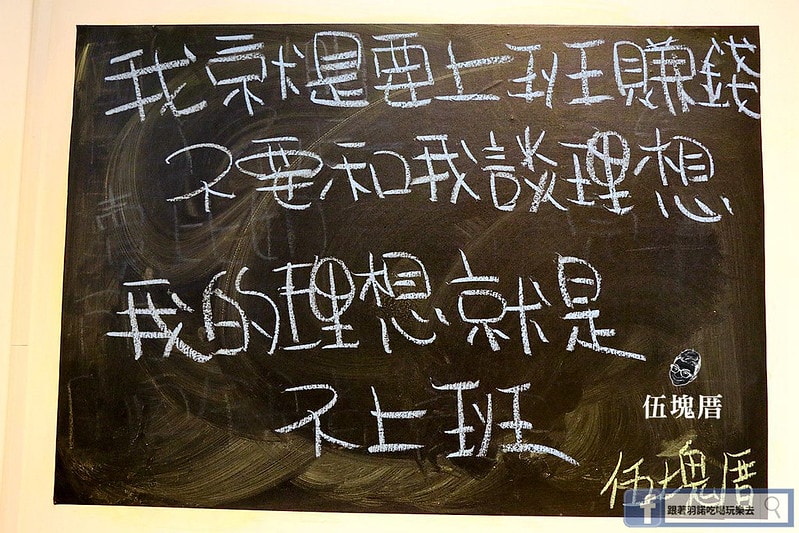 我就是要上班賺錢
不要和我談理想
我的理想就是
不上班
伍塊厝
伍塊厝
f 跟著羽諾吃喝玩樂去